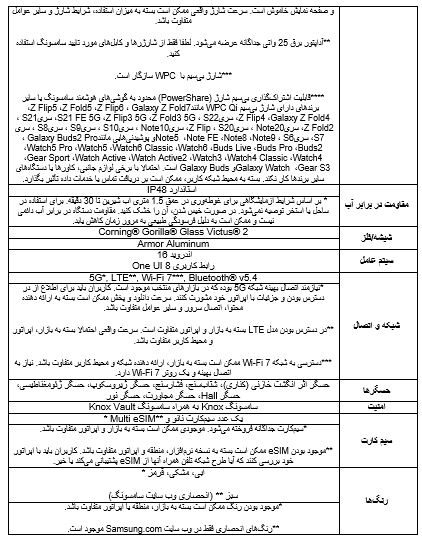 و صفحه نمایش خاموش است. سرعت شارژ واقعی ممکن است بسته به میزان استفاده، شرایط شارژ و سایر عوامل
متفاوت باشد.
**آداپتور برق 25 واتی جداگانه عرضه می‌شود. لطفا فقط از شارژرها و کابل‌های مورد تایید سامسونگ استفاده
کنید.
***شارژ بی‌سیم با WPC سازگار است.
****قابلیت اشتراک‌گذاری بی‌سیم شارژ (PowerShare) محدود به گوشی‌های هوشمند سامسونگ یا سایر
برندهای دارای شارژ بی‌سیم WPC Qi مانند Galaxy Z Fold7، Z Flip6، Z Fold5، Z Flip5،
Galaxy Z Fold4، Z Flip4، سری S22، Z Fold3 5G، Z Flip3 5G، S21 FE 5G، سری S21،
Z Fold2، سری Note20، سری S20، Z Flip، سری Note10، سری S10، سری S9، سری S8، سری
S7، سری S6، Note9، Note8، Note FE، Note5 و پوشیدنی‌هایی مانند Galaxy Buds2 Pro،
Buds2، Buds Pro، Buds Live، Watch6، Watch6 Classic، Watch5، Watch5 Pro،
Watch4، Watch4 Classic، Watch3، Watch Active2، Watch Active، Gear Sport،
Gear S3، Galaxy Watch و Galaxy Buds است. احتمالا با برخی لوازم جانبی، کاورها یا دستگاه‌های
سایر برندها کار نکند. بسته به محیط شبکه کاربر، ممکن است بر دریافت تماس یا خدمات داده تأثیر بگذارد.
مقاومت در برابر آب
استاندارد IP48
* بر اساس شرایط آزمایشگاهی برای غوطه‌وری در عمق 1.5 متری آب شیرین تا 30 دقیقه. برای استفاده در
ساحل یا استخر توصیه نمی‌شود. در صورت خیس شدن، آن را خشک کنید. مقاومت دستگاه در برابر آب دائمی
نیست و ممکن است به دلیل فرسودگی طبیعی به مرور زمان کاهش یابد.
شیشه/فلز
Corning® Gorilla® Glass Victus® 2
Armor Aluminum
سیتم عامل
اندروید 16
رابط کاربری One UI 8
شبکه و اتصال
5G*, LTE**, Wi-Fi 7***, Bluetooth® v5.4
*نیازمند اتصال بهینه شبکه 5G بوده که در بازارهای منتخب موجود است. کاربران باید برای اطلاع از در
دسترس بودن و جزئیات با اپراتور خود مشورت کنند. سرعت دانلود و پخش ممکن است بسته به ارائه دهنده
محتوا، اتصال سرور و سایر عوامل متفاوت باشد.
**در دسترس بودن مدل LTE بسته به بازار و اپراتور متفاوت است. سرعت واقعی احتمالا به بازار، اپراتور
و محیط کاربر متفاوت باشد.
***دسترسی به شبکه Wi-Fi 7 ممکن است بسته به بازار، ارائه دهنده شبکه و محیط کاربر متفاوت باشد. نیاز به
اتصال بهینه و یک روتر Wi-Fi 7 دارد.
حسگرها
حسگر اثر انگشت خازنی (کناری)، شتاب‌سنج، فشارسنج، حسگر ژیروسکوپ، حسگر ژئومغناطیسی،
حسگر Hall، حسگر مجاورت، حسگر نور
امنیت
سامسونگ Knox به همراه سامسونگ Knox Vault
سیم کارت
یک عدد سیم‌کارت نانو و Multi eSIM** *
*سیم‌کارت جداگانه فروخته می‌شود. موجودی ممکن است بسته به بازار و اپراتور متفاوت باشد.
**موجود بودن eSIM ممکن است بسته به نسخه نرم‌افزار، منطقه و اپراتور متفاوت باشد. کاربران باید با اپراتور
خود بررسی کنند که آیا طرح شبکه تلفن همراه آنها از eSIM پشتیبانی می‌کند یا خیر.
رنگ‌ها
آبی، مشکی، قرمز *
سبز ** (انحصاری وب سایت سامسونگ)
*موجود بودن رنگ ممکن است بسته به بازار، منطقه یا اپراتور متفاوت باشد.
**رنگ‌های انحصاری فقط در وب سایت Samsung.com موجود است.